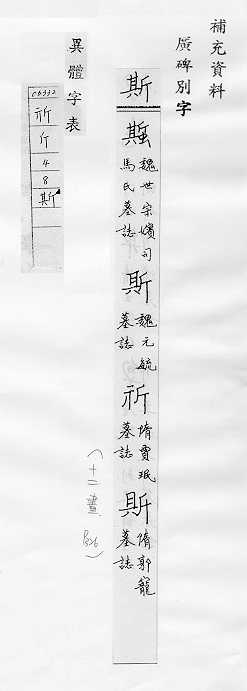 補充資料
廣碑別字
斯
魏世宗嬪司
馬氏墓誌
斯
魏元毓
墓誌
祈
隋賈珉
墓誌
斯
隋郭龍
墓誌
(十二畫)
異體字表
祈
斤
4
8
斯